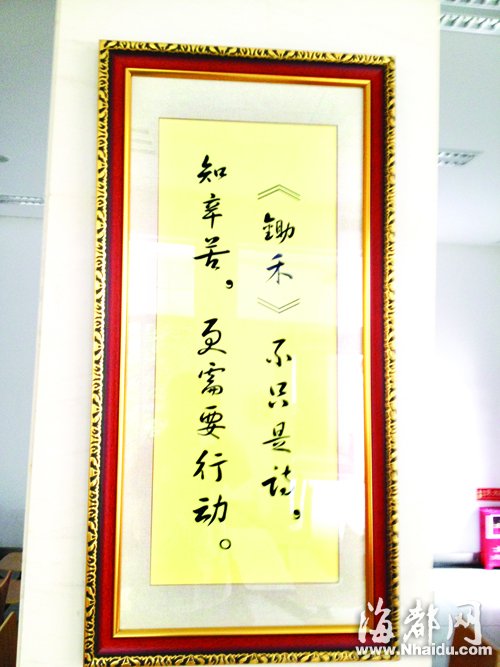 《鋤禾》不只是诗，
知辛苦，更需要行动。
海都网
www.Nhaidu.com